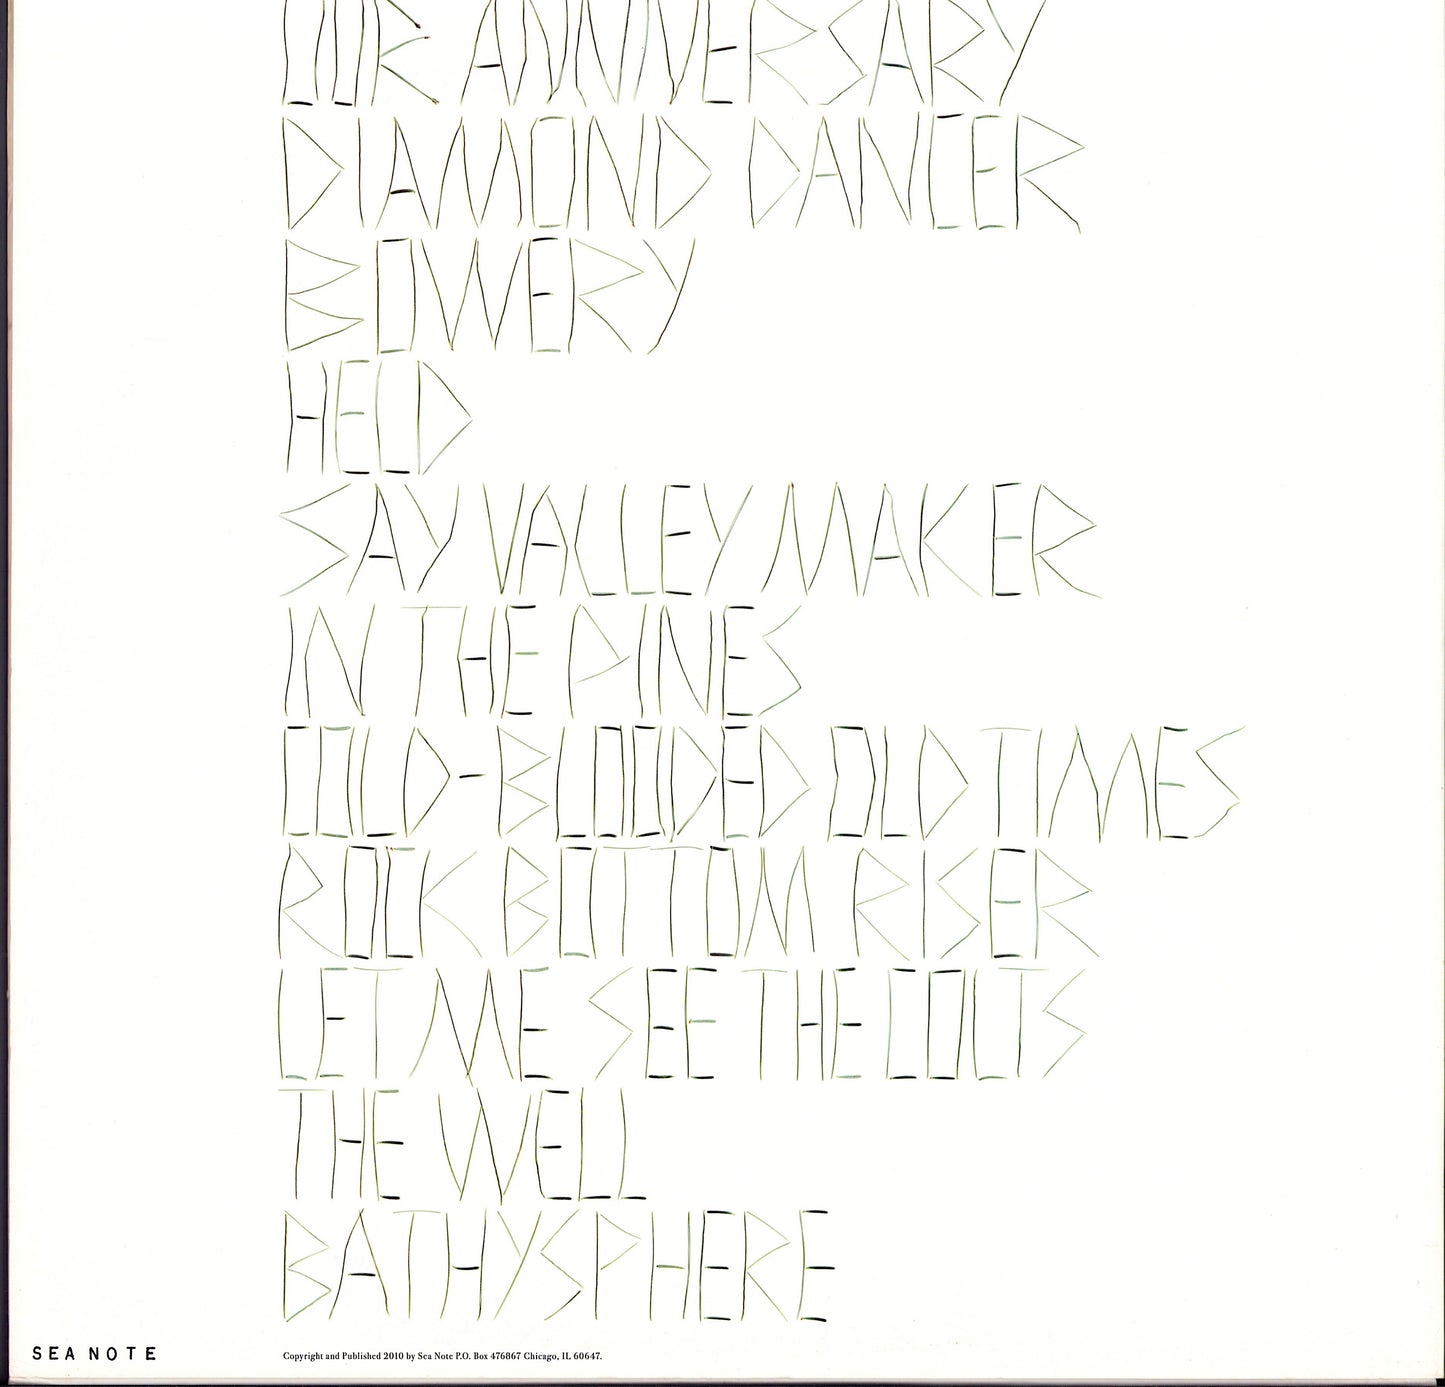 OUR ANNIVERSARY
DIAMOND DANCER
BOWERY
HELD
SAY VALLEY MAKER
IN THE PINES
COLD-BLOODED OLD TIMES
ROCK BOTTOM RISER
LET ME SEE THE COLTS
THE WELL
BATHYSPHERE
SEA NOTE
Copyright and Published 2010 by Sea Note P.O. Box 476867 Chicago, IL 60647.